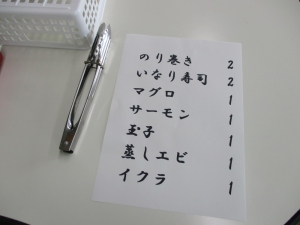 のり巻き 2
いなり寿司 2
マグロ 1
サーモン 1
玉子 1
蒸しエビ 1
イクラ 1